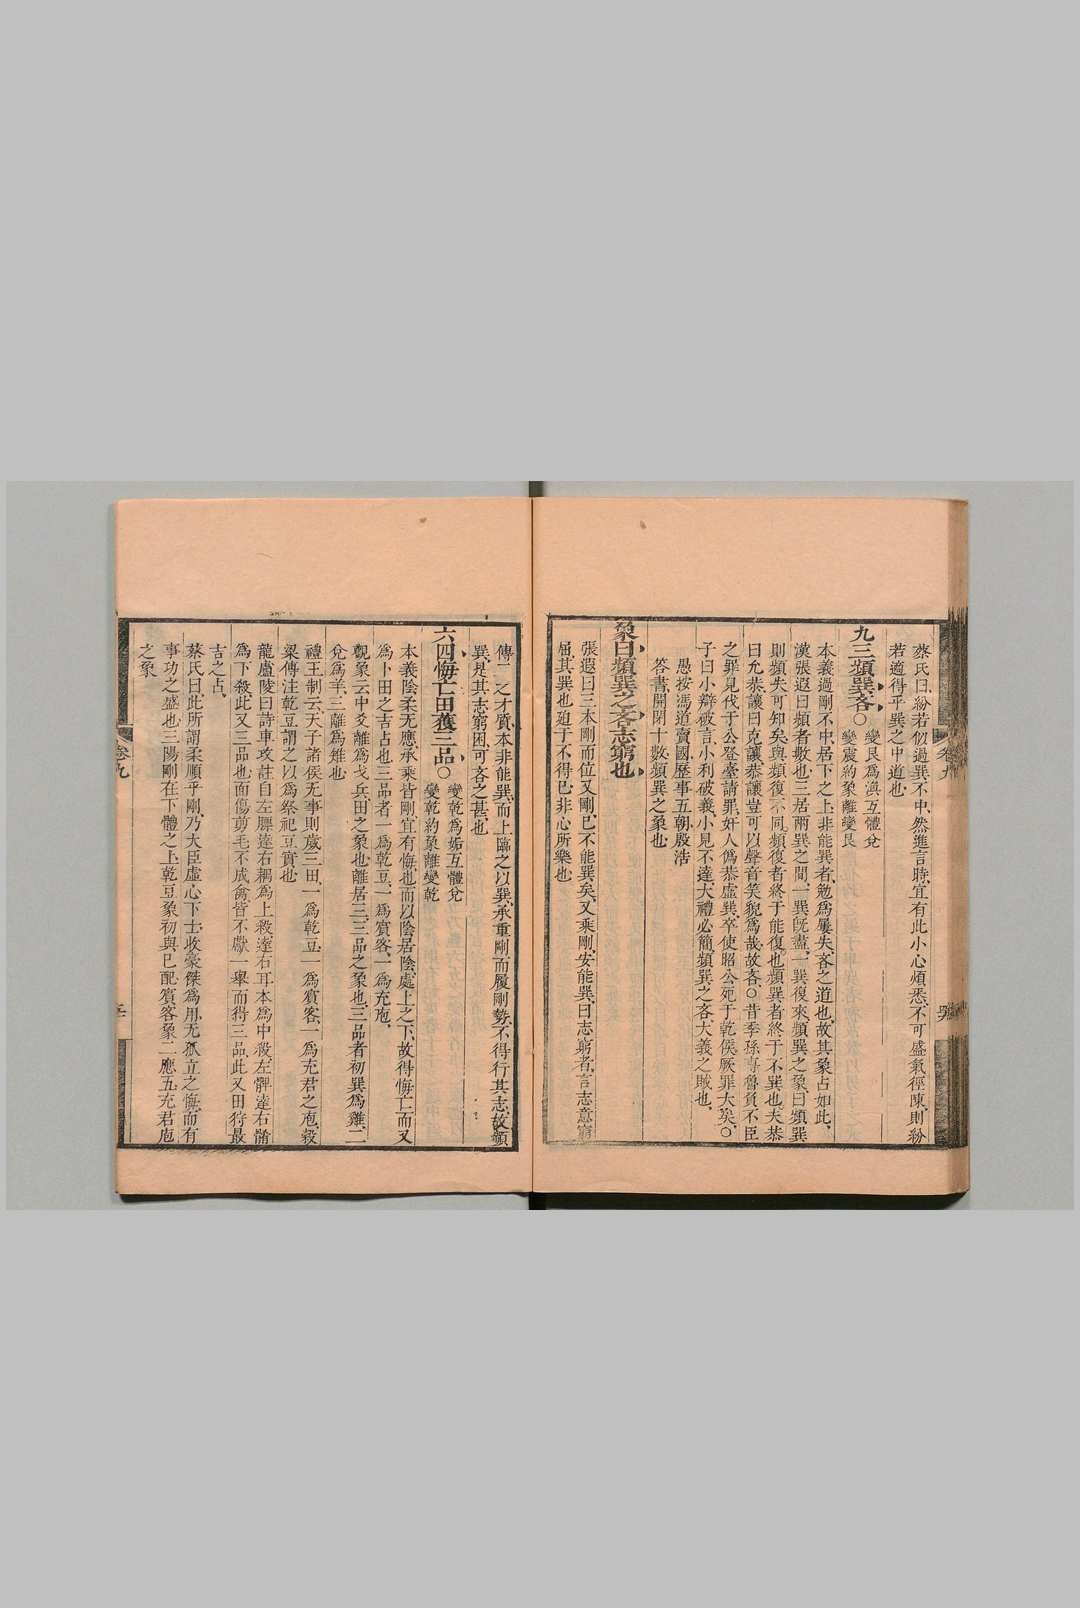 蔡氏曰紛若似過巽不中然進言時宜有此小心煩悉不可盛氣徑陳則紛
若適得乎巽之中道也
九三頻巽吝○
變艮爲渙互體兌
變震約象離變艮
本義過剛不中居下之上非能巽者勉爲屢失吝之道也故其象占如此
漢張遐曰頻者數也三居兩巽之間一巽旣盡一巽復來頻巽之象曰頻巽
則頻失可知矣與頻復不同頻復者終于能復也頻巽者終于不巽也夫恭
曰允恭讓曰克讓恭讓豈可以聲音笑貌爲哉故吝○昔季孫專魯負不臣
之罪見伐于公登臺請罪奸人僞恭虛巽卒使昭公死于乾侯厥罪大矣○
子曰小辯破言小利破義小見不達大禮必簡頻巽之吝大義之賊也
愚按馮道賣國歷事五朝殷浩
答書開閉十數頻巽之象也
象曰頻巽之吝志窮也
張遐曰三本剛而位又剛已不能巽矣又乘剛安能巽曰志窮者言志意窮
屈其巽也廹于不得已非心所樂也
傳三之才質本非能巽而上臨之以巽承重剛而履剛勢不得行其志故頻
巽是其志窮困可吝之甚也
六四悔亡田獲三品○
變乾爲姤互體兌
變乾約象離變乾
本義陰柔无應承乘皆剛宜有悔也而以陰居陰處上之下故得悔亡而又
爲卜田之吉占也三品者一爲乾豆一爲賓客一爲充庖
觀象云中爻離爲戈兵田之象也離居三三品之象也三品者初巽爲雞二
兌爲羊三離爲雉也
禮王制云天子諸侯无事則歲三田一爲乾豆一爲賓客一爲充君之庖穀
梁傳注乾豆謂之以爲祭祀豆實也
龍廬陵曰詩車攻註自左膘達右髃爲上殺達右耳本爲中殺左髀達右𩩲
爲下殺此又三品也面傷剪毛不成禽皆不獻一舉而得三品此又田狩最
吉之占
蔡氏曰此所謂柔順乎剛乃大臣虛心下士收豪傑爲用无孤立之悔而有
事功之盛也三陽剛在下體之上乾豆象初與巳配賓客象二應五充君庖
之象
卷九
卷九